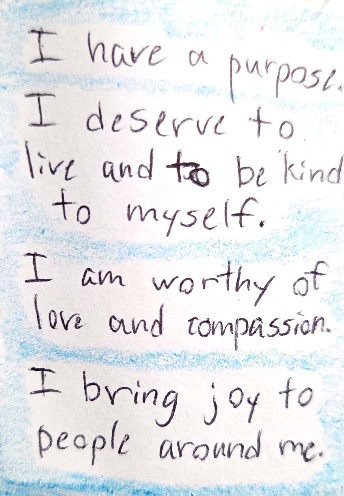 I have a purpose.
I deserve to
live and to be kind
to myself.
I am worthy of
love and compassion.
I bring joy to
people around me.